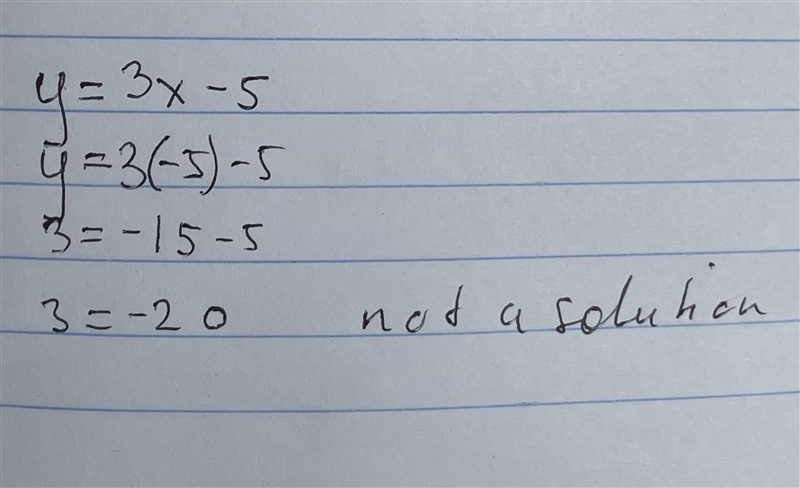 y = 3x - 5
y = 3(-5) - 5
3 = -15 - 5
3 = -20 not a solution